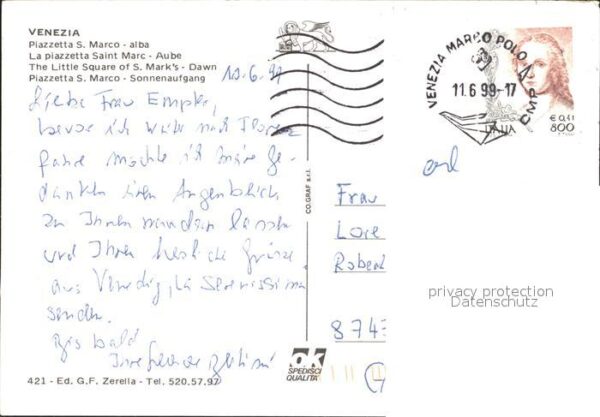 VENEZIA
Piazzetta S. Marco - alba
La piazzetta Saint Marc - Aube
The Little Square of S. Mark's - Dawn
Piazzetta S. Marco - Sonnenaufgang
10.6.99
Liebe Frau
bevor ich weiter nach Florenz
fahre möchte ich meine Ge-
danken einen Augenblick
zu Ihnen wandern lassen
und Ihnen herzliche Grüsse
aus Venedig, la Serenissima
senden.
Bis bald
Ihre
421 - Ed. G.F. Zerella - Tel. 520.57.97
CO.GRAF s.r.l.
ok
SPEDISCI
QUALITÀ
VENEZIA MARCO POLO
CMP
11.6.99-17
ITALIA
€ 0,41
800
Frau
Lore
Robert
privacy protection
Datenschutz
8743